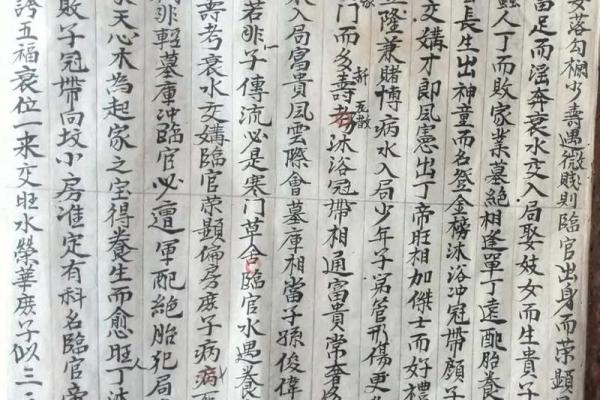 妾落勾棚少壽遇微賤则臨官出身而荣顕
富足而滛奔衰水交入局娶妓女而生貴子
蠱人丁而敗家業墓絶相逢單丁遠配胎養
長生出神童而名登金榜沐浴冲冠帶顔子
交媾才即風憲出丁帝旺相加傑士而好禮
隆兼賭博病水入局少年子弟管形傷更
門而多壽考沐浴冠帶相通富貴常奢
折
瓦散
入局富貴風雲際會墓庫相當子孫俊偉
若非子傳流必是寒门草舍臨官水遇養
壽考衰水交媾臨官荣顕偏房庶子病病
非輕墓庫冲臨官必遭軍配絶胎犯局
天心木為起家之宝得養生而愈旺丁
敗子冠帶向坟小房准定有科名臨官帝
誇五福衰位一来交旺水榮華庶子似三